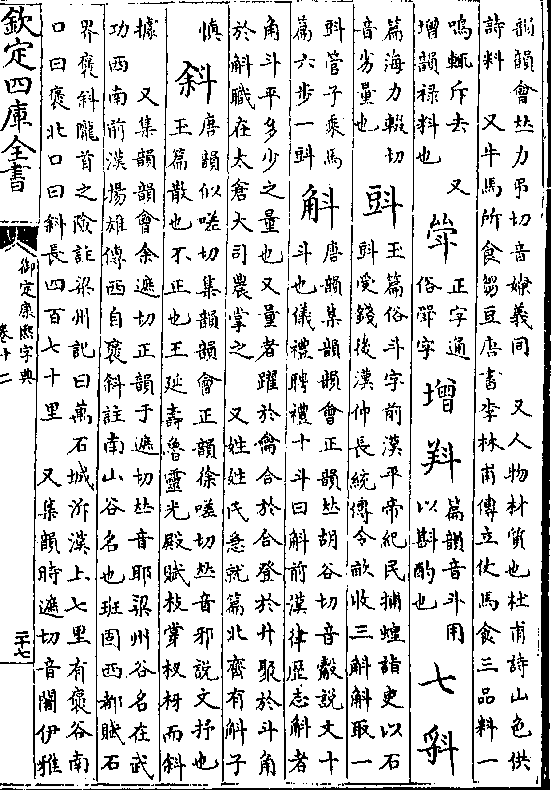 韻韻會𠀤力弔切音嫽義同　又人物材質也杜甫詩山色供
詩料　又牛馬所食芻豆唐書李林甫傳立仗馬食三品料一
鳴輒斥去　又
增韻禄料也
正字通
俗斝字
增
篇韻音斗用
以斟酌也
七
篇海力輟切
音劣量也
㪷
玉篇俗斗字前漢平帝紀民捕蝗詣吏以石
㪷受錢後漢仲長統傳令畝收三斛斛取一
㪷管子乘馬
篇六步一㪷
斛
唐韻集韻韻會正韻𠀤胡谷切音縠說文十
斗也儀禮聘禮十斗曰斛前漢律歷志斛者
角斗平多少之量也又量者躍於龠合於合登於升聚於斗角
於斛職在太倉大司農掌之　又姓姓氏急就篇北齊有斛子
慎
斜
唐韻似嗟切集韻韻會正韻徐嗟切𠀤音邪說文抒也
玉篇散也不正也王延壽魯靈光殿賦枝掌杈枒而斜
據　又集韻韻會余遮切正韻于遮切𠀤音耶梁州谷名在武
功西南前漢揚雄傳西自褒斜註南山谷名也班固西都賦右
界褒斜隴首之險註梁州記曰萬石城沂漢上七里有褒谷南
口曰褒北口曰斜長四百七十里　又集韻時遮切音闍伊雅
欽定四庫全書
御定康熙字典
卷十二
三十七